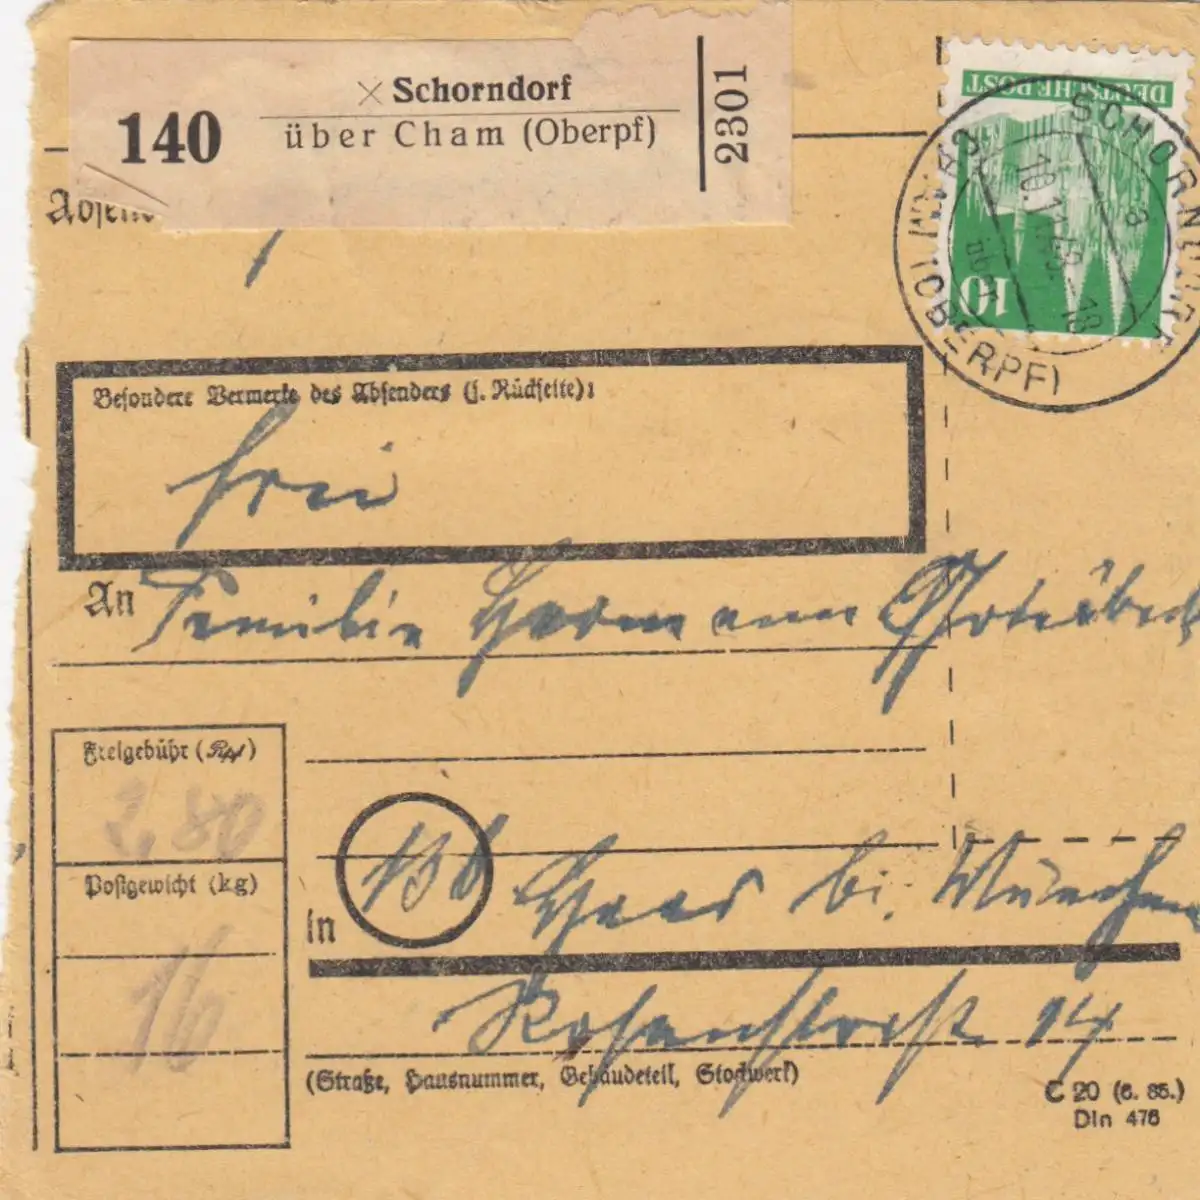 × Schorndorf
140
über Cham (Oberpf)
2301
DEUTSCHE POST
10
SCHORNDORF
über
CHAM (OBERPF)
a
10.11.48.-18
Besondere Vermerke des Absenders (s. Rückseite):
frei
An Familie Hermann
Freigebühr (Rpf)
2,80
Postgewicht (kg)
16
in 13b Haar bei München
Rosenstraße 14
(Straße, Hausnummer, Gebäudeteil, Stockwerk)
C 20 (6. 35.)
Din 476